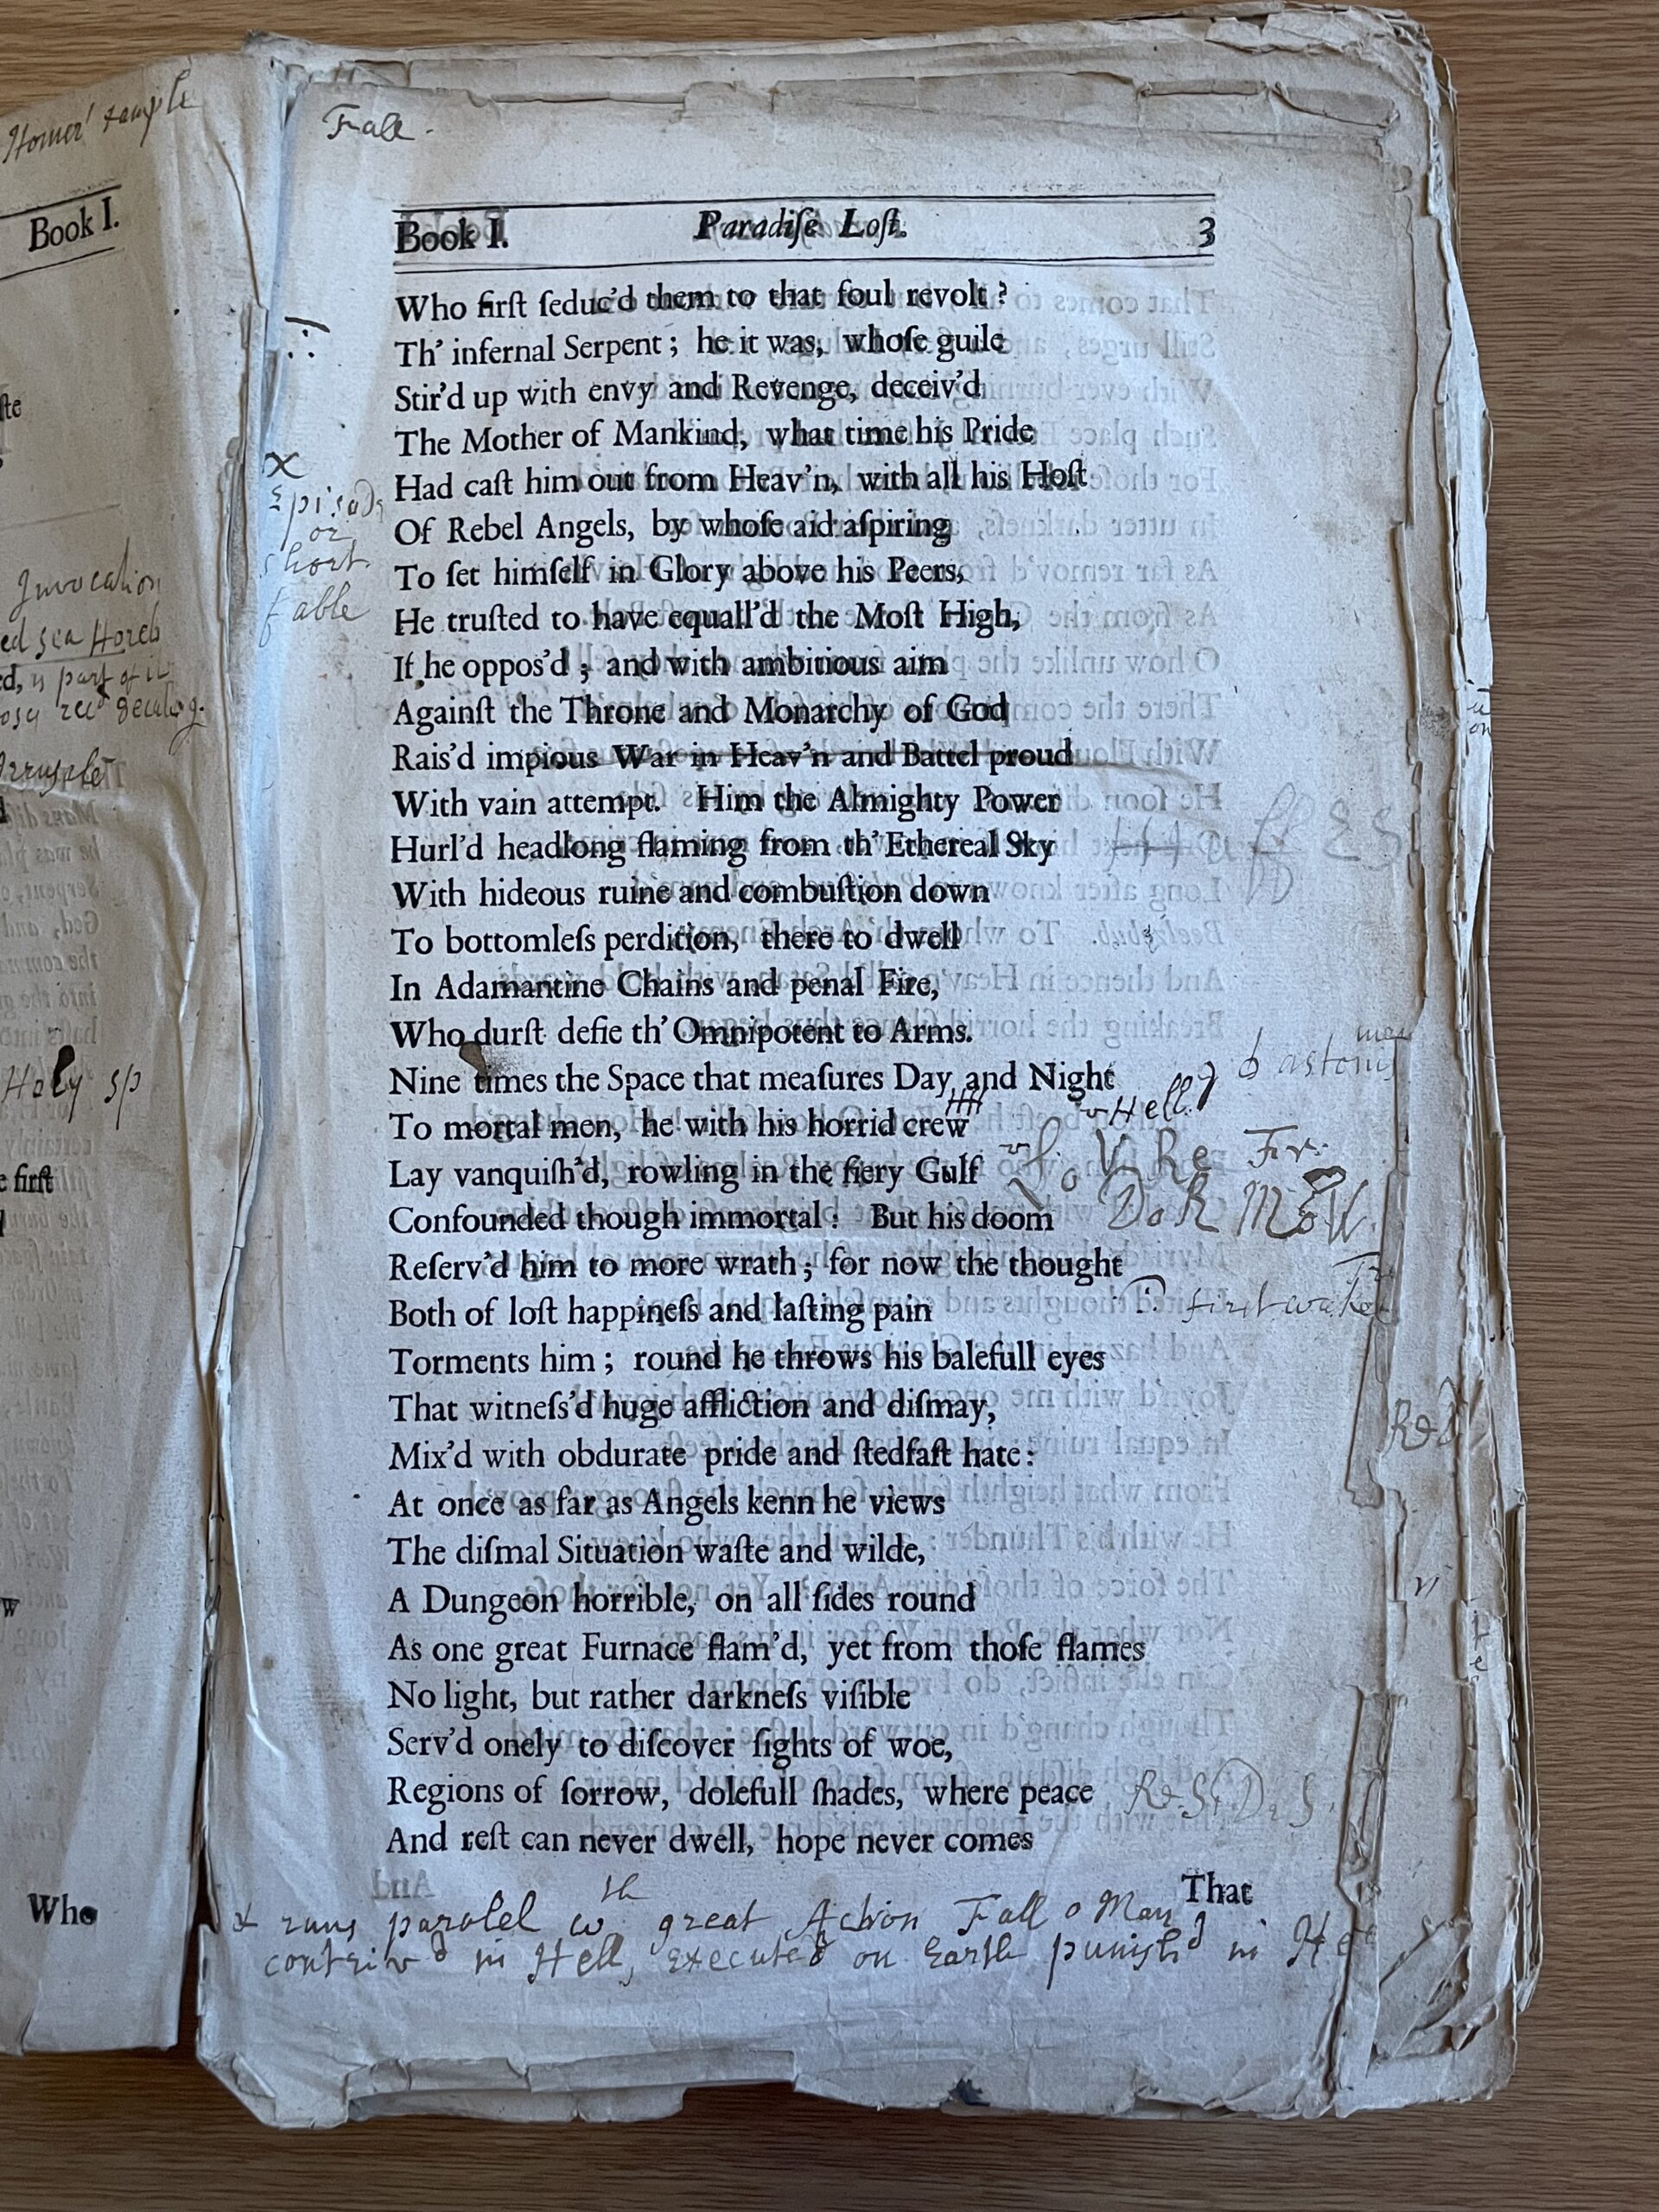 Homer'
Book I.
Invocation
sea Horeb
is part of it
Holy sp
first
Who
Fall.
Book I. Paradiſe Loſt. 3
Who firſt ſeduc'd them to that foul revolt ?
Th' infernal Serpent ; he it was, whoſe guile
Stir'd up with envy and Revenge, deceiv'd
The Mother of Mankind, what time his Pride
Had caſt him out from Heav'n, with all his Hoſt
Of Rebel Angels, by whoſe aid aſpiring
To ſet himſelf in Glory above his Peers,
He truſted to have equall'd the Moſt High,
If he oppos'd ; and with ambitious aim
Againſt the Throne and Monarchy of God
Rais'd impious War in Heav'n and Battel proud
With vain attempt. Him the Almighty Power
Hurl'd headlong flaming from th' Ethereal Sky
With hideous ruine and combuſtion down
To bottomleſs perdition, there to dwell
In Adamantine Chains and penal Fire,
Who durſt defie th' Omnipotent to Arms.
Nine times the Space that meaſures Day and Night
To mortal men, he with his horrid crew
Lay vanquiſh'd, rowling in the fiery Gulf
Confounded though immortal : But his doom
Reſerv'd him to more wrath ; for now the thought
Both of loſt happineſs and laſting pain
Torments him ; round he throws his balefull eyes
That witneſs'd huge affliction and diſmay,
Mix'd with obdurate pride and ſtedfaſt hate :
At once as far as Angels kenn he views
The diſmal Situation waſte and wilde,
A Dungeon horrible, on all ſides round
As one great Furnace flam'd, yet from thoſe flames
No light, but rather darkneſs viſible
Serv'd onely to diſcover ſights of woe,
Regions of ſorrow, dolefull ſhades, where peace
And reſt can never dwell, hope never comes
That
x
Episode
or
short
fable
Hell
x runs paralel wth great Action Fall o Man
contriv'd in Hell, executed on Earth punish'd in